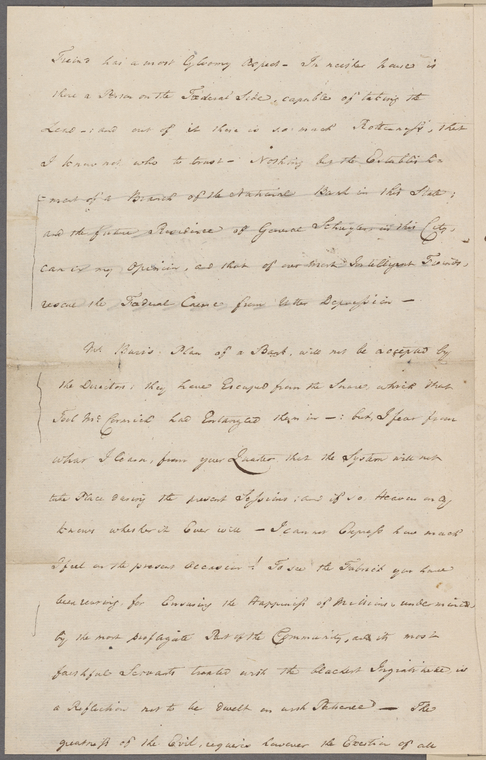 Friend has a most Gloomy Aspect — In neither house is
there a Person on the Fœderal Side, capable of taking the
Lead — : and out of it there is so much Rottenness, that
I know not who to trust — Nothing but the Establish
ment of a Branch of the National Bank in this State;
and the future Residence of General Schuyler in this City,
can in my Opinion, and that of our most Intelligent Friends,
rescue the Fœderal Cause from Utter Depression —
Mr Burr's Plan of a Bank, will not be accepted by
the Directors: they have Escaped from the Snare, which that
Fool McCormick had Entangled them in — : but, I fear from
what I learn, from your Quarter, that the System will not
take Place during the present Sessions; and if so Heaven only
knows whether it Ever will — I cannot Express how much
I feel on the present Occasion! To see the Fabrick you have
been rearing for Ensuring the Happiness of Millions, undermined,
by the most profligate Part of the Community, and its most
faithful Servants treated with the blackest Ingratitude, is
a Reflection not to be dwelt on with Patience — The
greatness of the Evil, requires however the Exertion of all